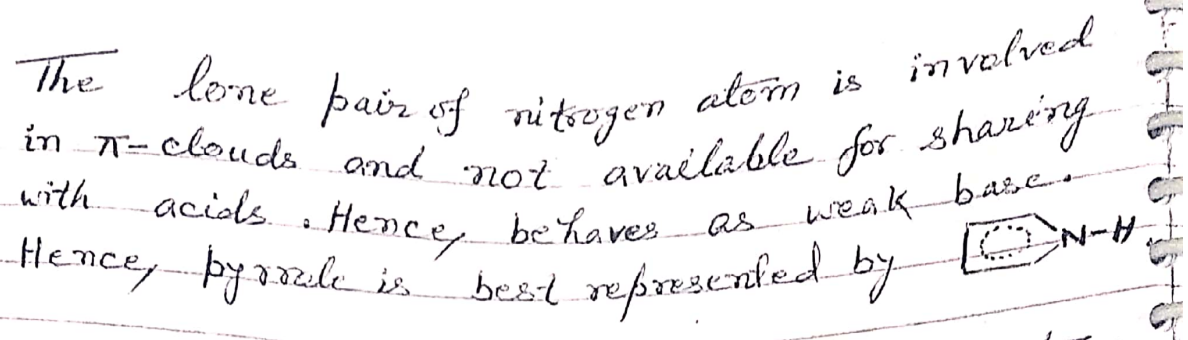 The lone pair of nitrogen atom is involved
in π-clouds and not available for sharing
with acids. Hence, behaves as weak base.
Hence, pyrrole is best represented by N-H